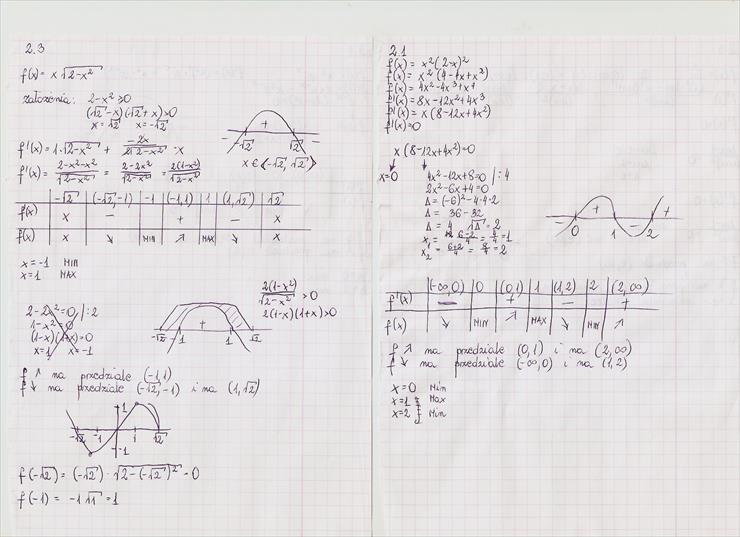 2.3
f(x) = x √2-x²
założenia: 2-x² ≥0
(√2-x)(√2+x)>0
x=√2 x=-√2
+
-√2 √2
x∈<-√2, √2>
f'(x) = 1·√2-x² + -2x/2√2-x² ·x
f'(x) = 2-x²-x²/√2-x² = 2-2x²/√2-x² = 2(1-x²)/√2-x²
-√2 (-√2,-1) -1 (-1,1) 1 (1,√2) √2
f'(x) x − + − x
f(x) x ↘ MIN ↗ MAX ↘ x
x=-1 MIN
x=1 MAX
2-2x²=0 /:2
1-x²=0
(1-x)(1+x)=0
x=1 x=-1
+
-√2 -1 1 √2
2(1-x²)/√2-x² >0
2(1-x)(1+x)>0
f ↗ na przedziale (-1,1)
f ↘ na przedziale (-√2,-1) i na (1,√2)
1
-√2 -1 1 √2
-1
f(-√2) = (-√2)·√2-(-√2)² = 0
f(-1) = -1√1 = 1
2.1
f(x) = x²(2-x)²
f(x) = x²(4-4x+x³)
f(x) = 4x²-4x³+x⁴
f'(x) = 8x-12x²+4x³
f'(x) = x(8-12x+4x²)
f'(x)=0
x(8-12x+4x²)=0
x=0 4x²-12x+8=0 /:4
2x²-6x+4=0
Δ=(-6)²-4·4·2
Δ= 36-32
Δ= 4 √Δ=2
x₁= 6-2/4 = 4/4 =1
x₂= 6+2/4 = 8/4 = 2
− + − +
0 1 2
(-∞,0) 0 (0,1) 1 (1,2) 2 (2,∞)
f'(x) − + − +
f(x) ↘ MIN ↗ MAX ↘ MIN ↗
f ↗ na przedziale (0,1) i na (2,∞)
f ↘ na przedziale (-∞,0) i na (1,2)
x=0 Min
x=1 Max
x=2 Min